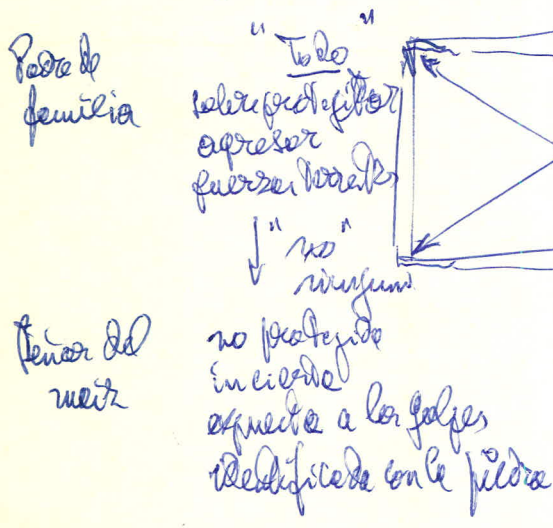 Padre de
familia
"Todo"
sobreprotegidor
agresor
fuerza
↓ "no"
ninguno
Señor del
maíz
no protegido
incierto
expuesta a los golpes
identificada con la piedra